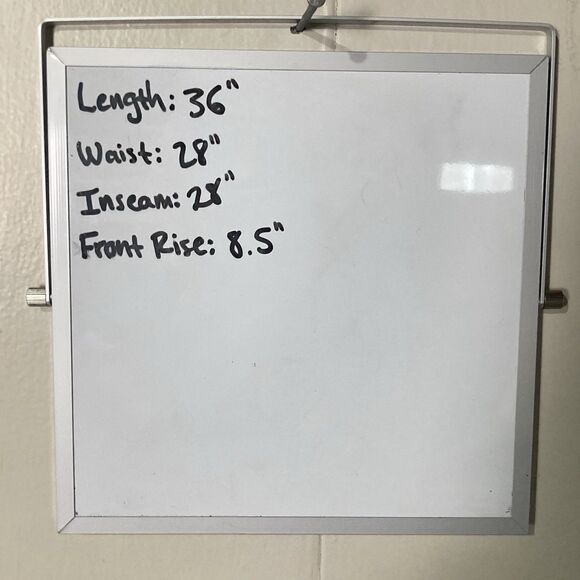 Length: 36"
Waist: 28"
Inseam: 28"
Front Rise: 8.5"